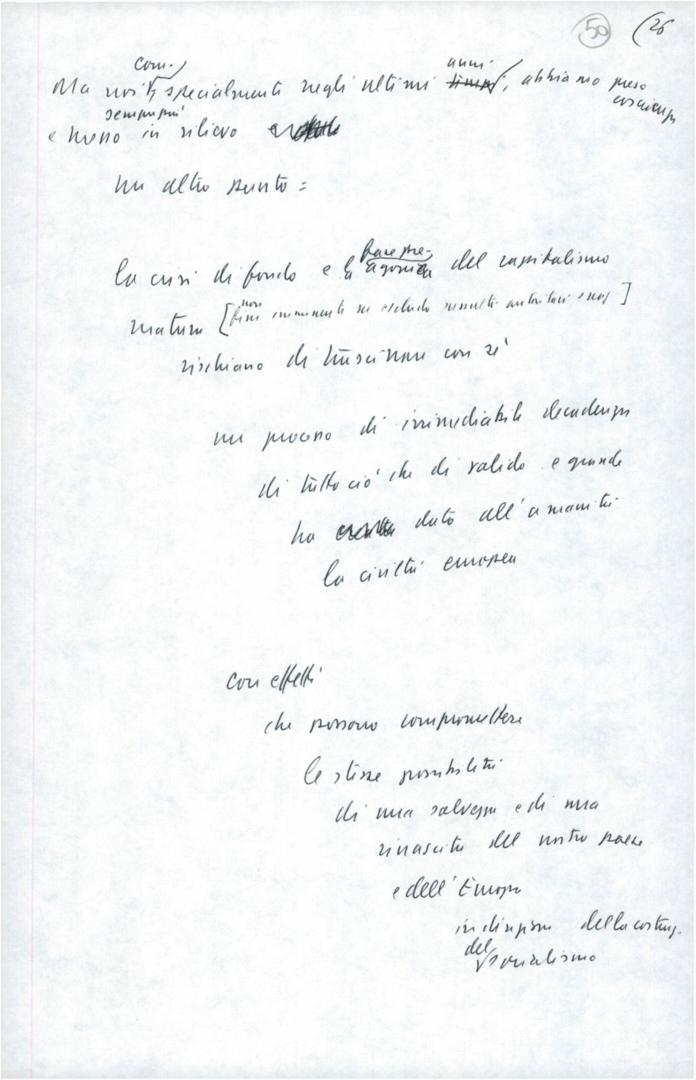 50 (26
com.
anni
Ma noi, specialmente negli ultimi tempi, abbiamo preso
coscienza
sempre più
e messo in rilievo
un altro punto =
fase pre-
la crisi di fondo e la agonica del capitalismo
non
maturo [fine imminente se escludo sussulti autoritari]
rischiano di trascinare con sé
un processo di irrimediabile decadenza
di tutto ciò che di valido e grande
ha dato all'umanità
la civiltà europea
con effetti
che possono compromettere
le stesse possibilità
di una salvezza e di una
rinascita del nostro paese
e dell'Europa
in direzione della costruz.
del
socialismo